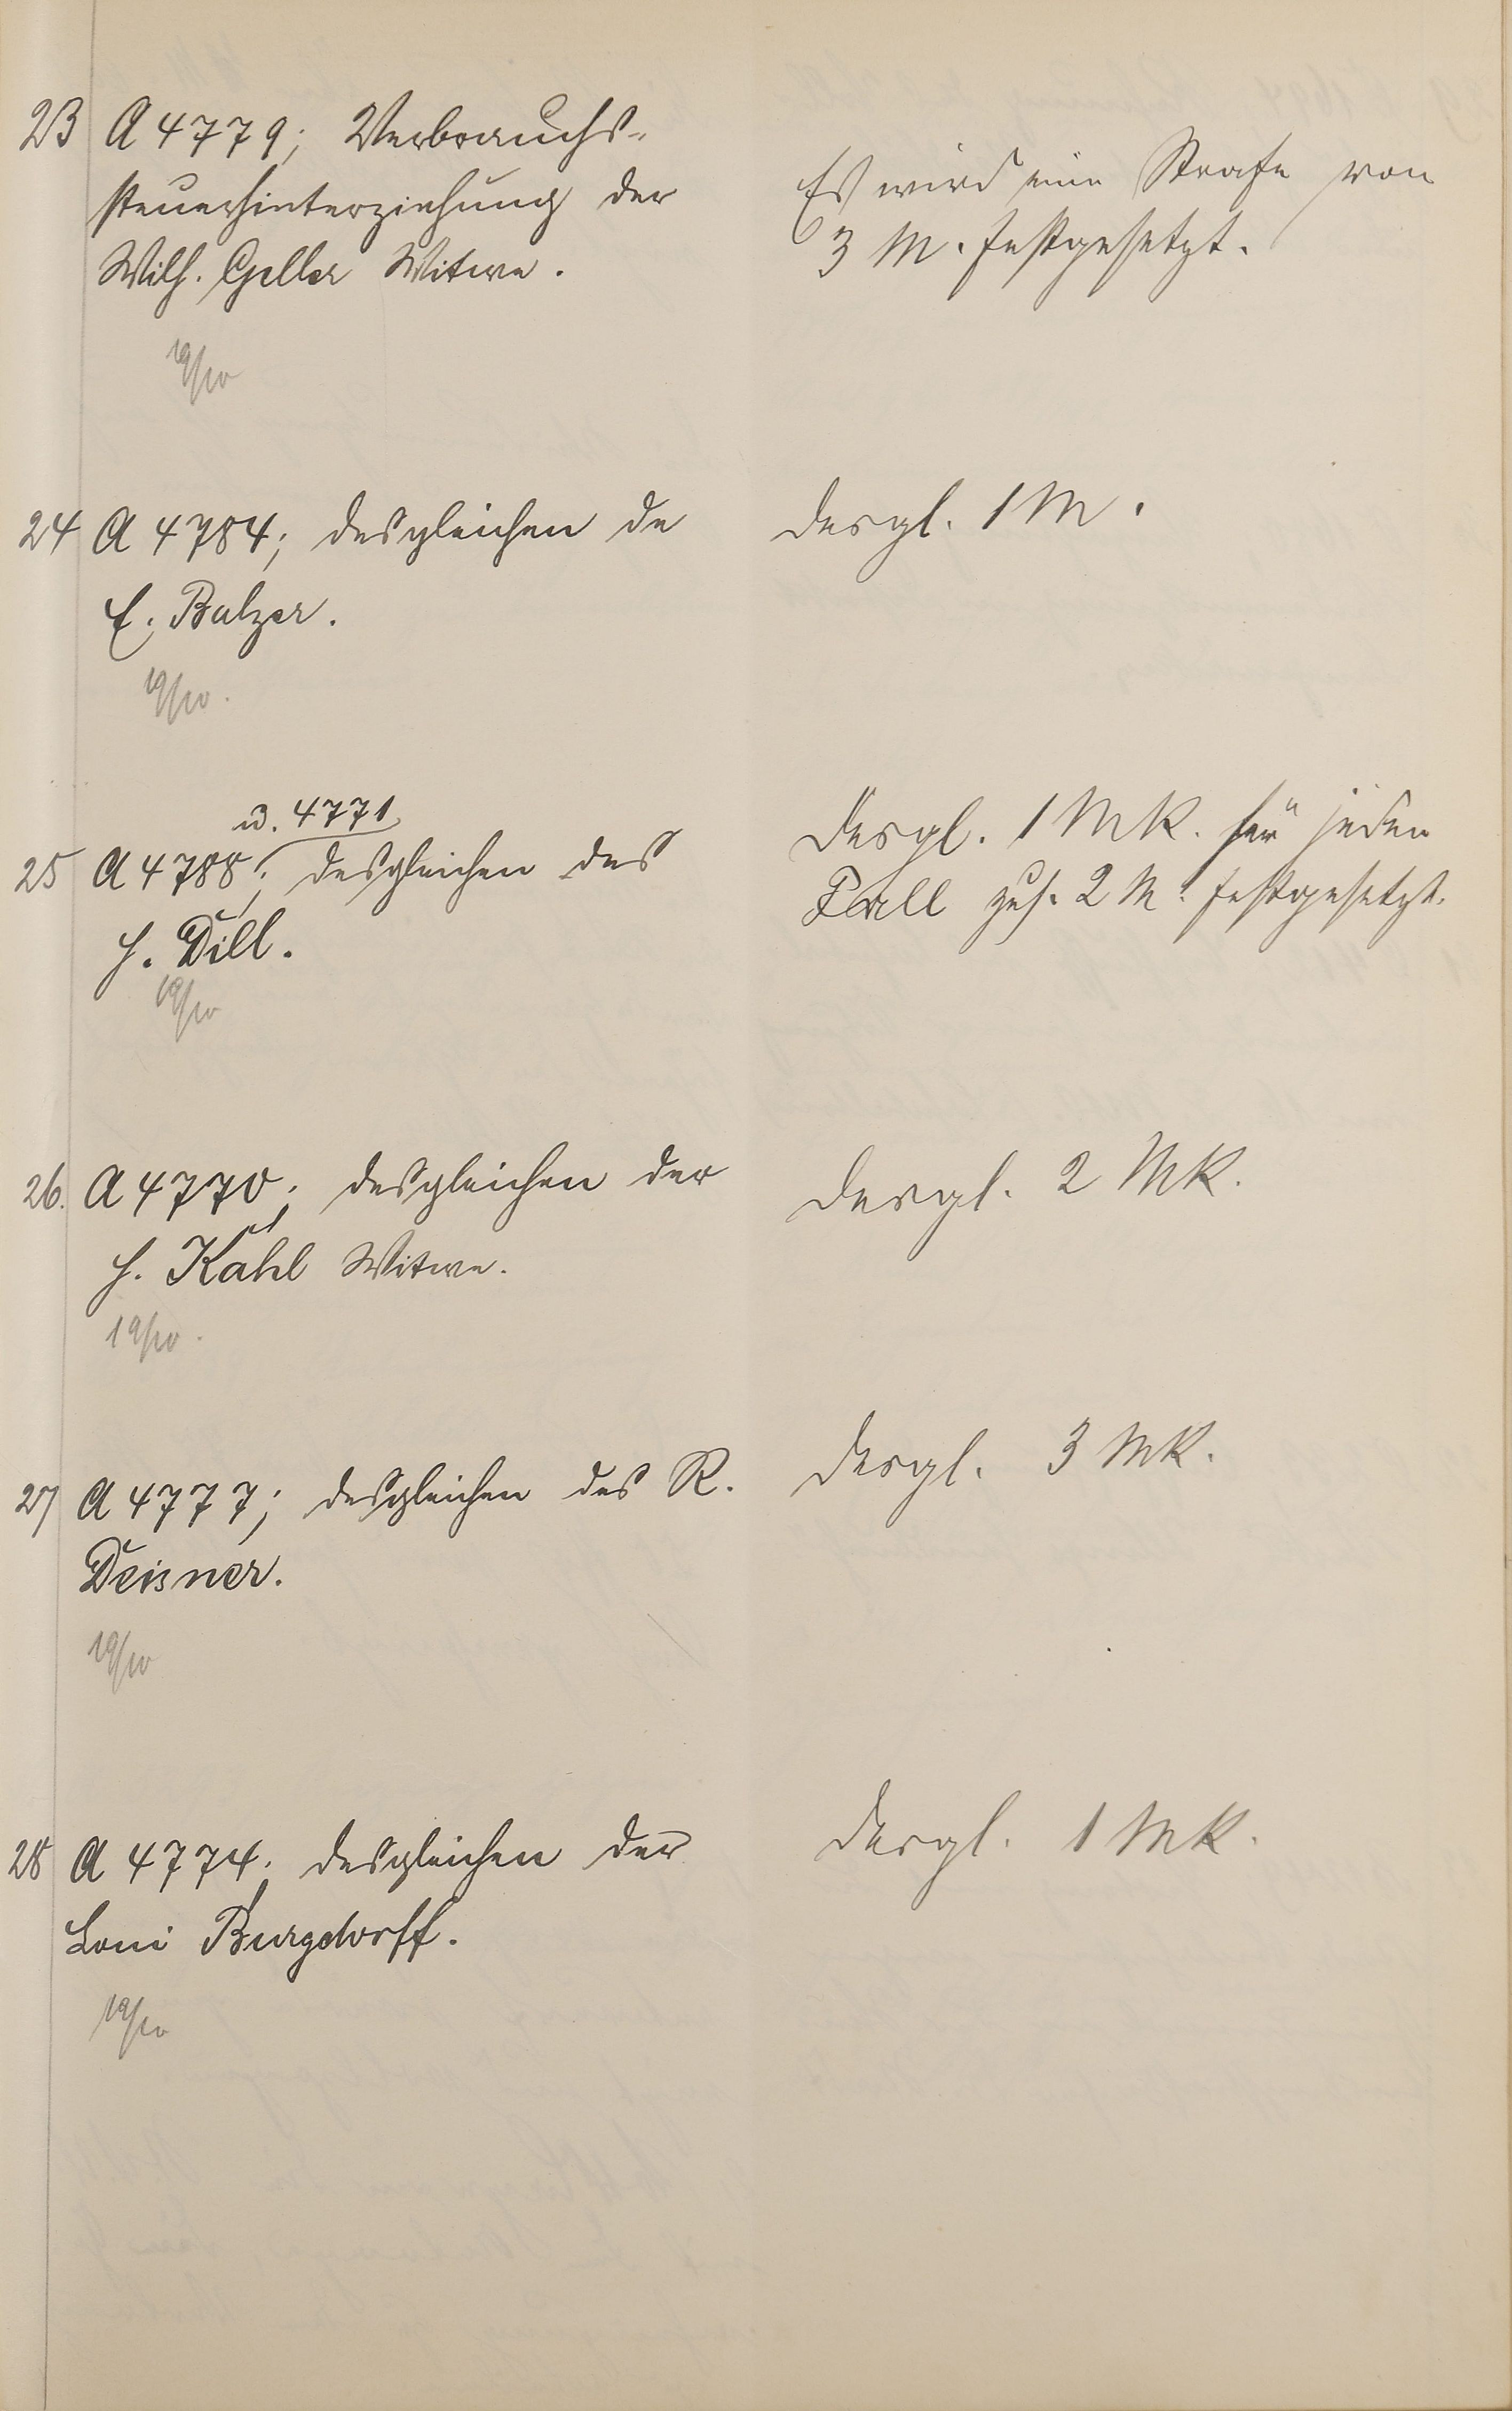 23 A 4779; Verbrauchs-
steuerhinterziehung der
Wilh. Geller Witwe.
19/10
Es wird eine Strafe von
3 M. festgesetzt.
24 A 4784; desgleichen de
E. Balzer.
19/10.
desgl. 1 M.
u. 4771
25 A 4788; desgleichen des
H. Dill.
19/10
desgl. 1 Mk. für jeden
Fall zus. 2 M. festgesetzt.
26. A 4770; desgleichen der
H. Kahl Witwe.
19/10.
desgl. 2 Mk.
27 A 4777; desgleichen des R.
Deisner.
19/10
desgl. 3 Mk.
28 A 4774; desgleichen der
Loni Burgdorff.
19/10
desgl. 1 Mk.